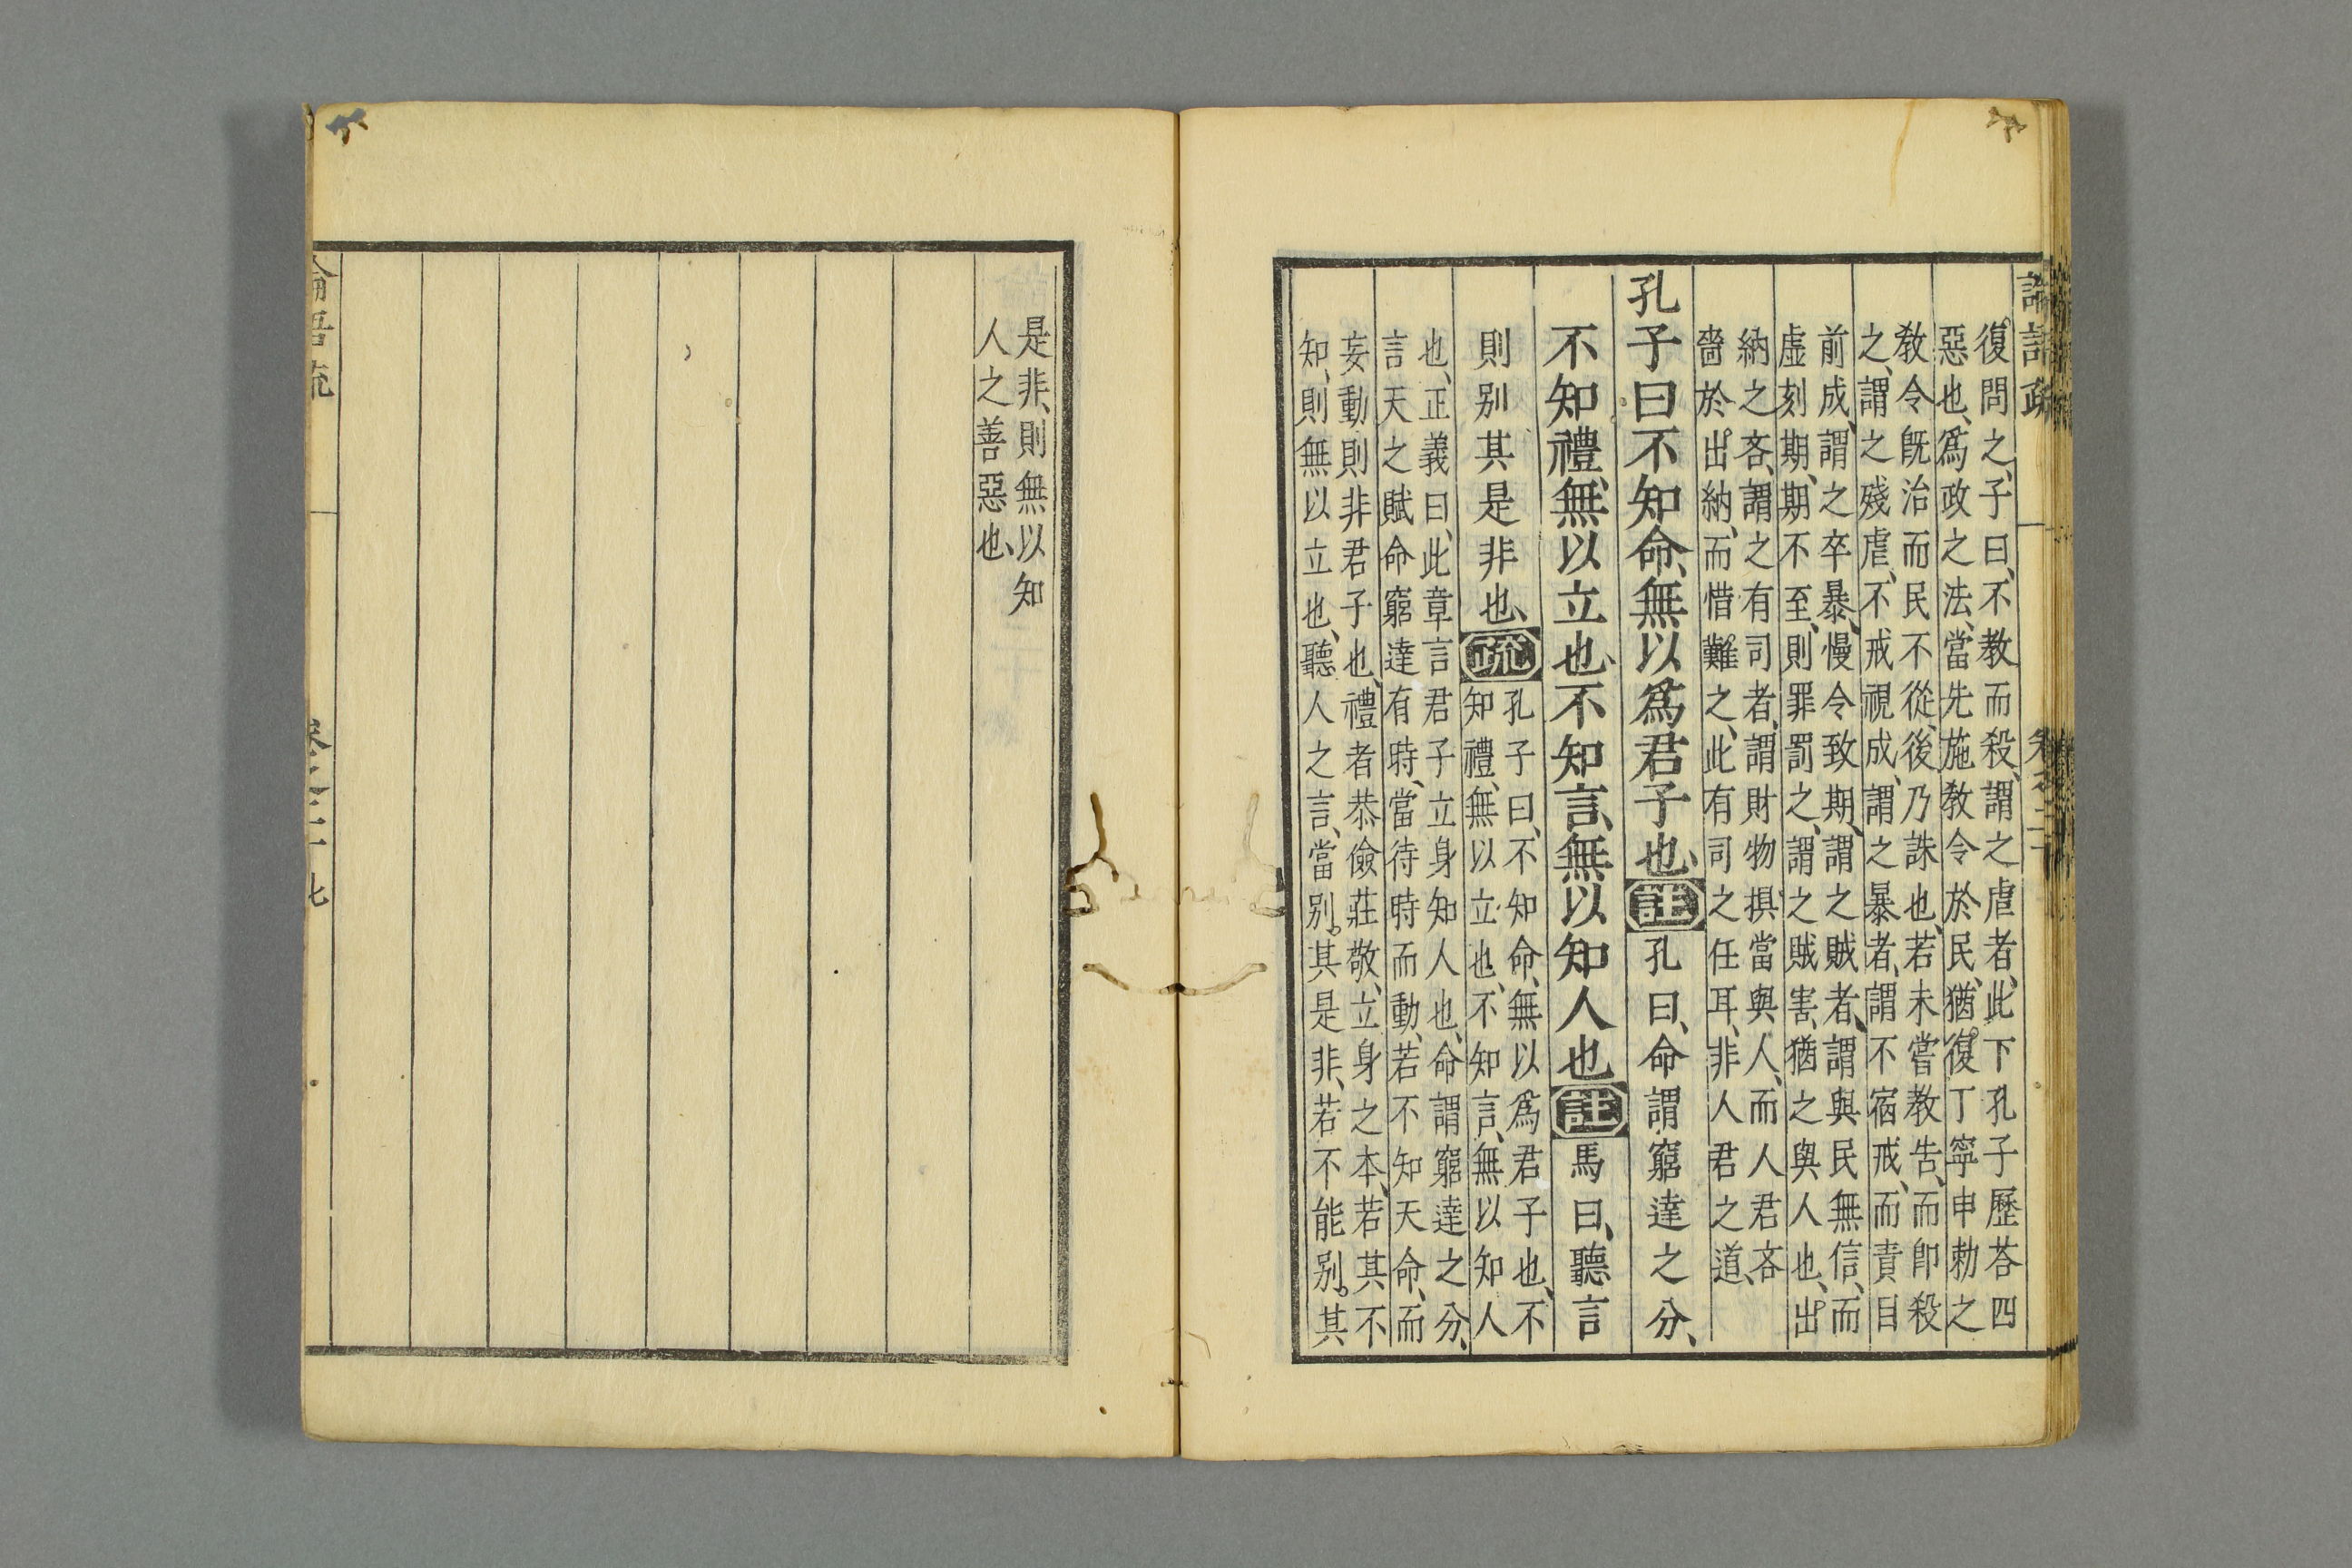 論語疏 卷之二十
復問之、子曰、不教而殺、謂之虐者、此下孔子歷荅四
惡也、爲政之法、當先施敎令於民、猶復丁寧申勅之
敎令旣治而民不從、後乃誅也、若未嘗敎告、而卽殺
之、謂之殘虐、不戒視成、謂之暴者、謂不宿戒、而責目
前成、謂之卒暴、慢令致期、謂之賊者、謂與民無信、而
虛刻期、期不至、則罪罰之、謂之賊害、猶之與人也、出
納之吝、謂之有司者、謂財物俱當與人、而人君吝
嗇於出納、而惜難之、此有司之任耳、非人君之道、
孔子曰不知命、無以爲君子也、註孔曰、命謂窮達之分、
不知禮、無以立也、不知言、無以知人也註馬曰、聽言
則别其是非也、疏孔子曰、不知命、無以爲君子也、不
知禮、無以立也、不知言、無以知人
也、正義曰、此章言君子立身知人也、命謂窮達之分、
言天之賦命窮達有時、當待時而動、若不知天命、而
妄動則非君子也、禮者恭儉莊敬、立身之本、若其不
知、則無以立也、聽人之言、當别其是非、若不能别其
是非、則無以知
人之善惡也、
論語疏 七